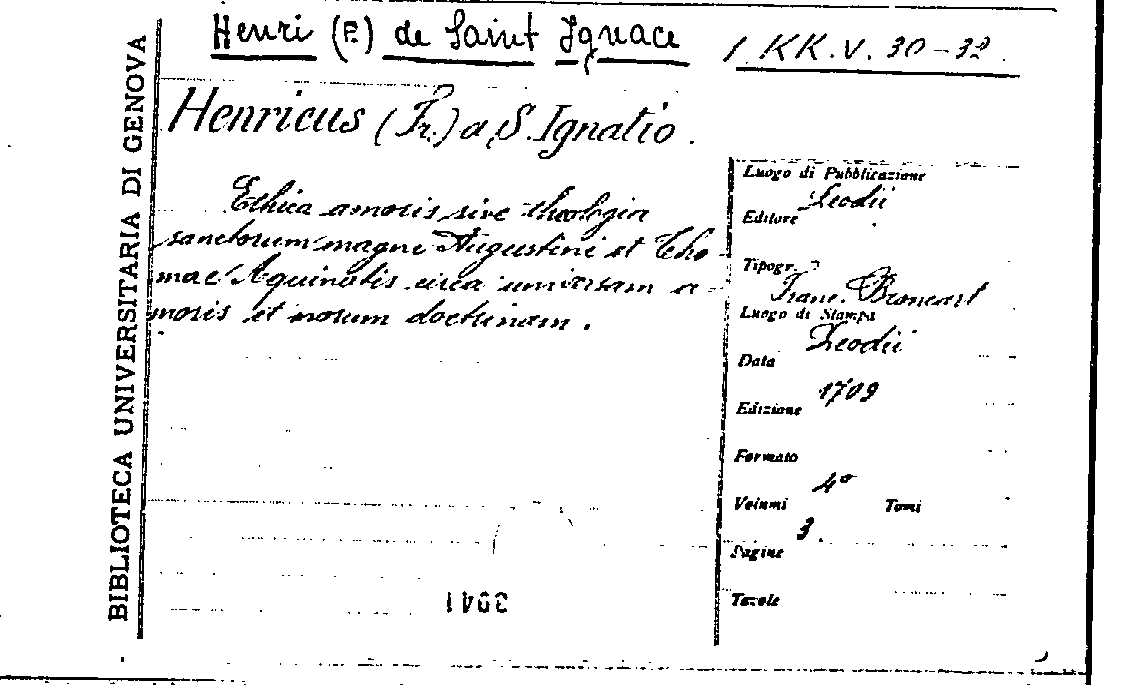 BIBLIOTECA UNIVERSITARIA DI GENOVA
Henri (P.) de Saint Ignace 1 KK.V. 30-32.
Henricus (Fr.) a S. Ignatio.
Ethica amoris sive theologia
sanctorum magni Augustini et Tho-
mae Aquinatis circa universam a-
moris et morum doctrinam.
Luogo di Pubblicazione
Leodii
Editore
Tipogr.
Franc. Broncart
Luogo di Stampa
Leodii
Data
1709
Edizione
Formato
4°
Volumi Tomi
3.
Pagine
Tavole